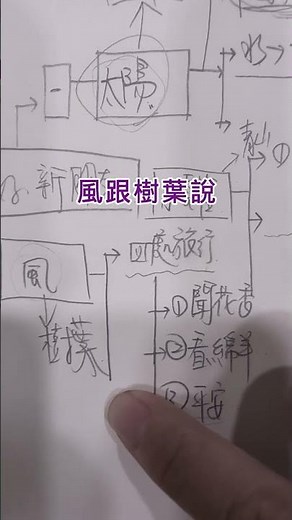 一
太陽
水→
新朋
風跟樹葉說
風
四處旅行
樹葉
①聞花香
②看綿羊
③平安